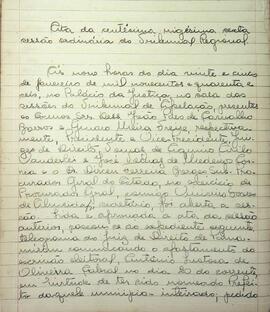 Ata da centésima, vigésima sexta
sessão ordinária do Tribunal Regional
Às nove horas do dia vinte e cinco
de janeiro de mil novecentos e quarenta e
seis, no Palácio da Justiça, na sala das
sessões do Tribunal de Apelação, presentes
os Exmos. Srs. Dess. João Paes de Carvalho
Barros e
mente, Presidente e Vice-Presidente, Jui-
zes de Direito,
e José
e o Dr. Sub-Pro-
curador Geral do Estado, no exercício de
Procurador Geral, comigo
de Almeida, secretário, foi aberta a ses-
são. Lida e aprovada a ata da sessão
anterior, passou-se ao expediente seguinte:
telegrama do juiz de Direito de
comunicando o afastamento do
escrivão eleitoral, Antônio
Oliveira Cabral no dia 20 do corrente,
em virtude de ter sido nomeado Prefei-
to daquele município - inteirado; pedido